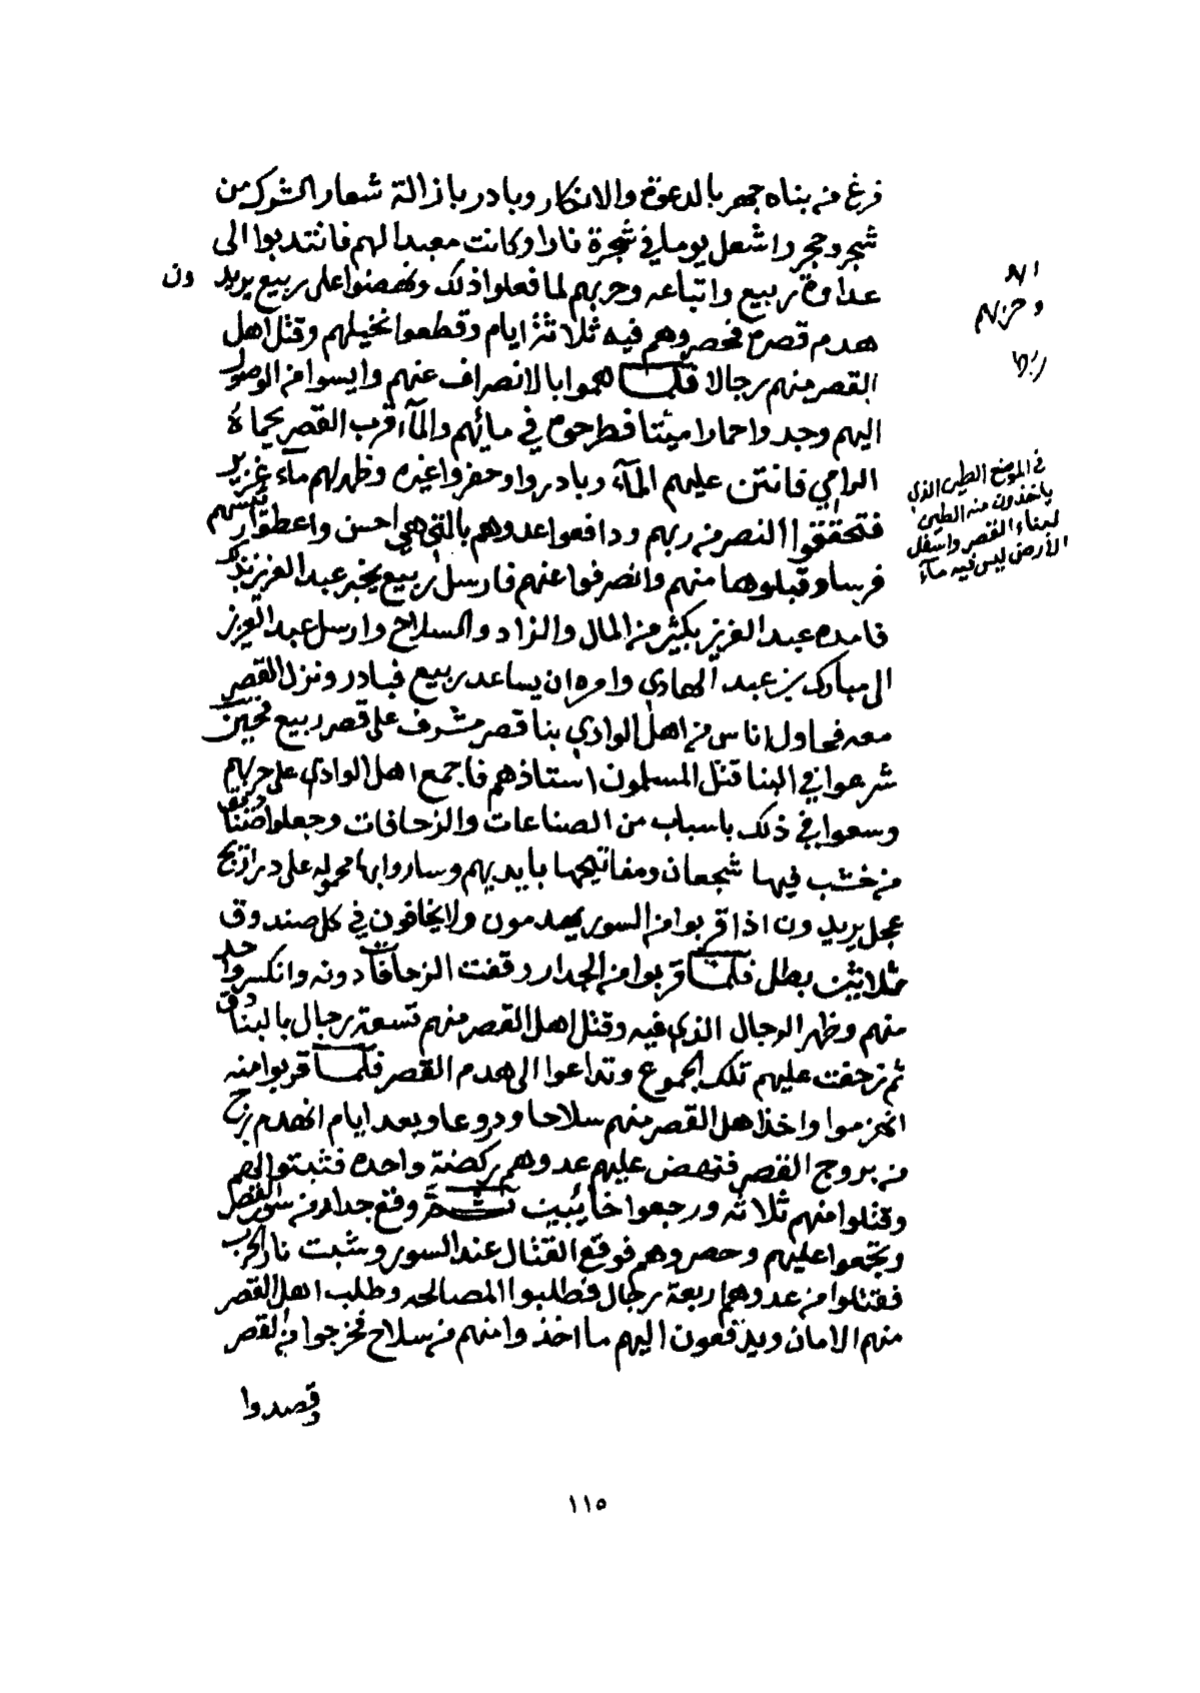 فرغ من بناه جهر بالدعوة والانكار وبادر بازالة شعار الشرك من
شجر وحجر واشعل يوما في شجرة نارا وكانت معبدا لهم فانتدبوا الى
عداوة ربيع واتباعه وحربهم لما فعلوا ذلك ونهضوا على ربيع يريدون
هدم قصره فحصروهم فيه ثلاثة ايام وقطعوا نخيلهم وقتل اهل
القصر منهم رجالا فلما هموا بالانصراف عنهم وايسوا من الوصول
اليهم وجدوا حمارا ميتا فطرحوه في مائهم والمآء قرب القصر بحماة
الرامي فانتن عليهم المآء وبادروا وحفروا غيره وظهر لهم مآء غزير
فتحققوا النصر من ربهم ودافعوا عدوهم بالتي هي احسن واعطوا رئيسهم
فرسا وقبلوها منهم وانصرفوا عنهم فارسل ربيع يخبر عبد العزيز بذلك
فامده عبد العزيز بكثير من المال والزاد والسلاح وارسل عبد العزيز
الى مبارك بن عبد الهادي وامره ان يساعد ربيع فبادر ونزل القصر
معه فحاول اناس من اهل الوادي بنا قصر مشرف على قصر ربيع فحين
شرعوا في البنا قتل المسلمون استاذهم فاجمع اهل الوادي على حربهم
وسعوا في ذلك باسباب من الصناعات والزحافات وجعلوا صناديق
من خشب فيها شجعان ومفاتيحها بايديهم وساروا بها محموله على دراريج
عجل يريدون اذا قربوا من السور يهدمون ولا يخافون في كل صندوق
ثلاثين بطل فلما قربوا من الجدار وقفت الزحافات دونه وانكسر واحد
منهم وظهر الرجال الذي فيه وقتل اهل القصر منهم تسعة رجال بالبنادق
ثم زحفت عليهم تلك الجموع وتداعوا الى هدم القصر فلما قربوا منه
انهزموا واخذ اهل القصر منهم سلاحا ودروعا وبعد ايام انهدم برج
من بروج القصر فنهض عليهم عدوهم ركضة واحده فثبتوا لهم
وقتلوا منهم ثلاثه ورجعوا خائبين ثم وقع جدار من سور القصر
وتجمعوا عليهم وحصروهم فوقع القتال عند السور وشبت نار الحرب
فقتلوا من عدوهم اربعة رجال فطلبوا المصالحه وطلب اهل القصر
منهم الامان ويدفعون اليهم ما اخذوا منهم من سلاح فخرجوا من القصر
وقصدوا
وحزبهم
في الموضع الطين الذي
ياخذون منه الطين
لبناء القصر واسفل
الأرض ليس فيه مآء
١١٥